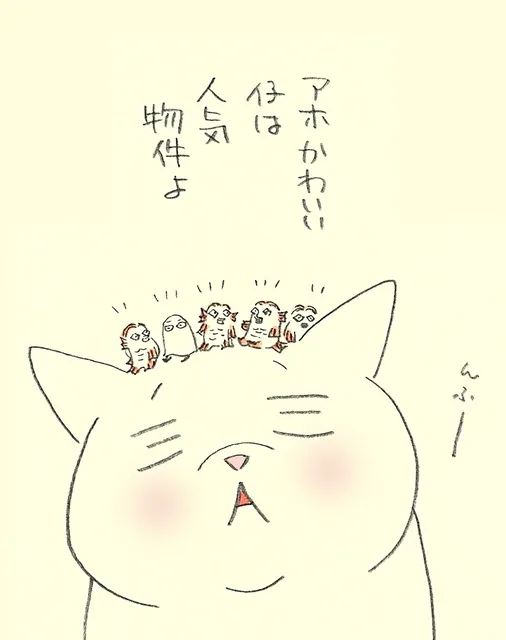 アホかわいい
仔は
人気
物件よ
んふー